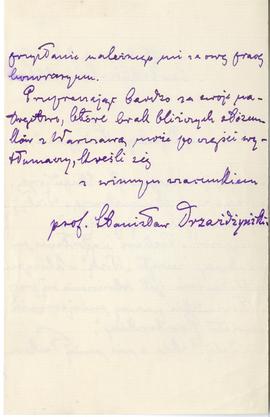 przysłanie należnego mi za ową pracę
honorarium.
Przepraszając bardzo za swoje na-
tręctwo, które brak bliższych stosun-
ków z Warszawą może po części wy-
tłumaczy, kreślę się
z winnym szacunkiem
prof. Stanisław Drzażdżyński